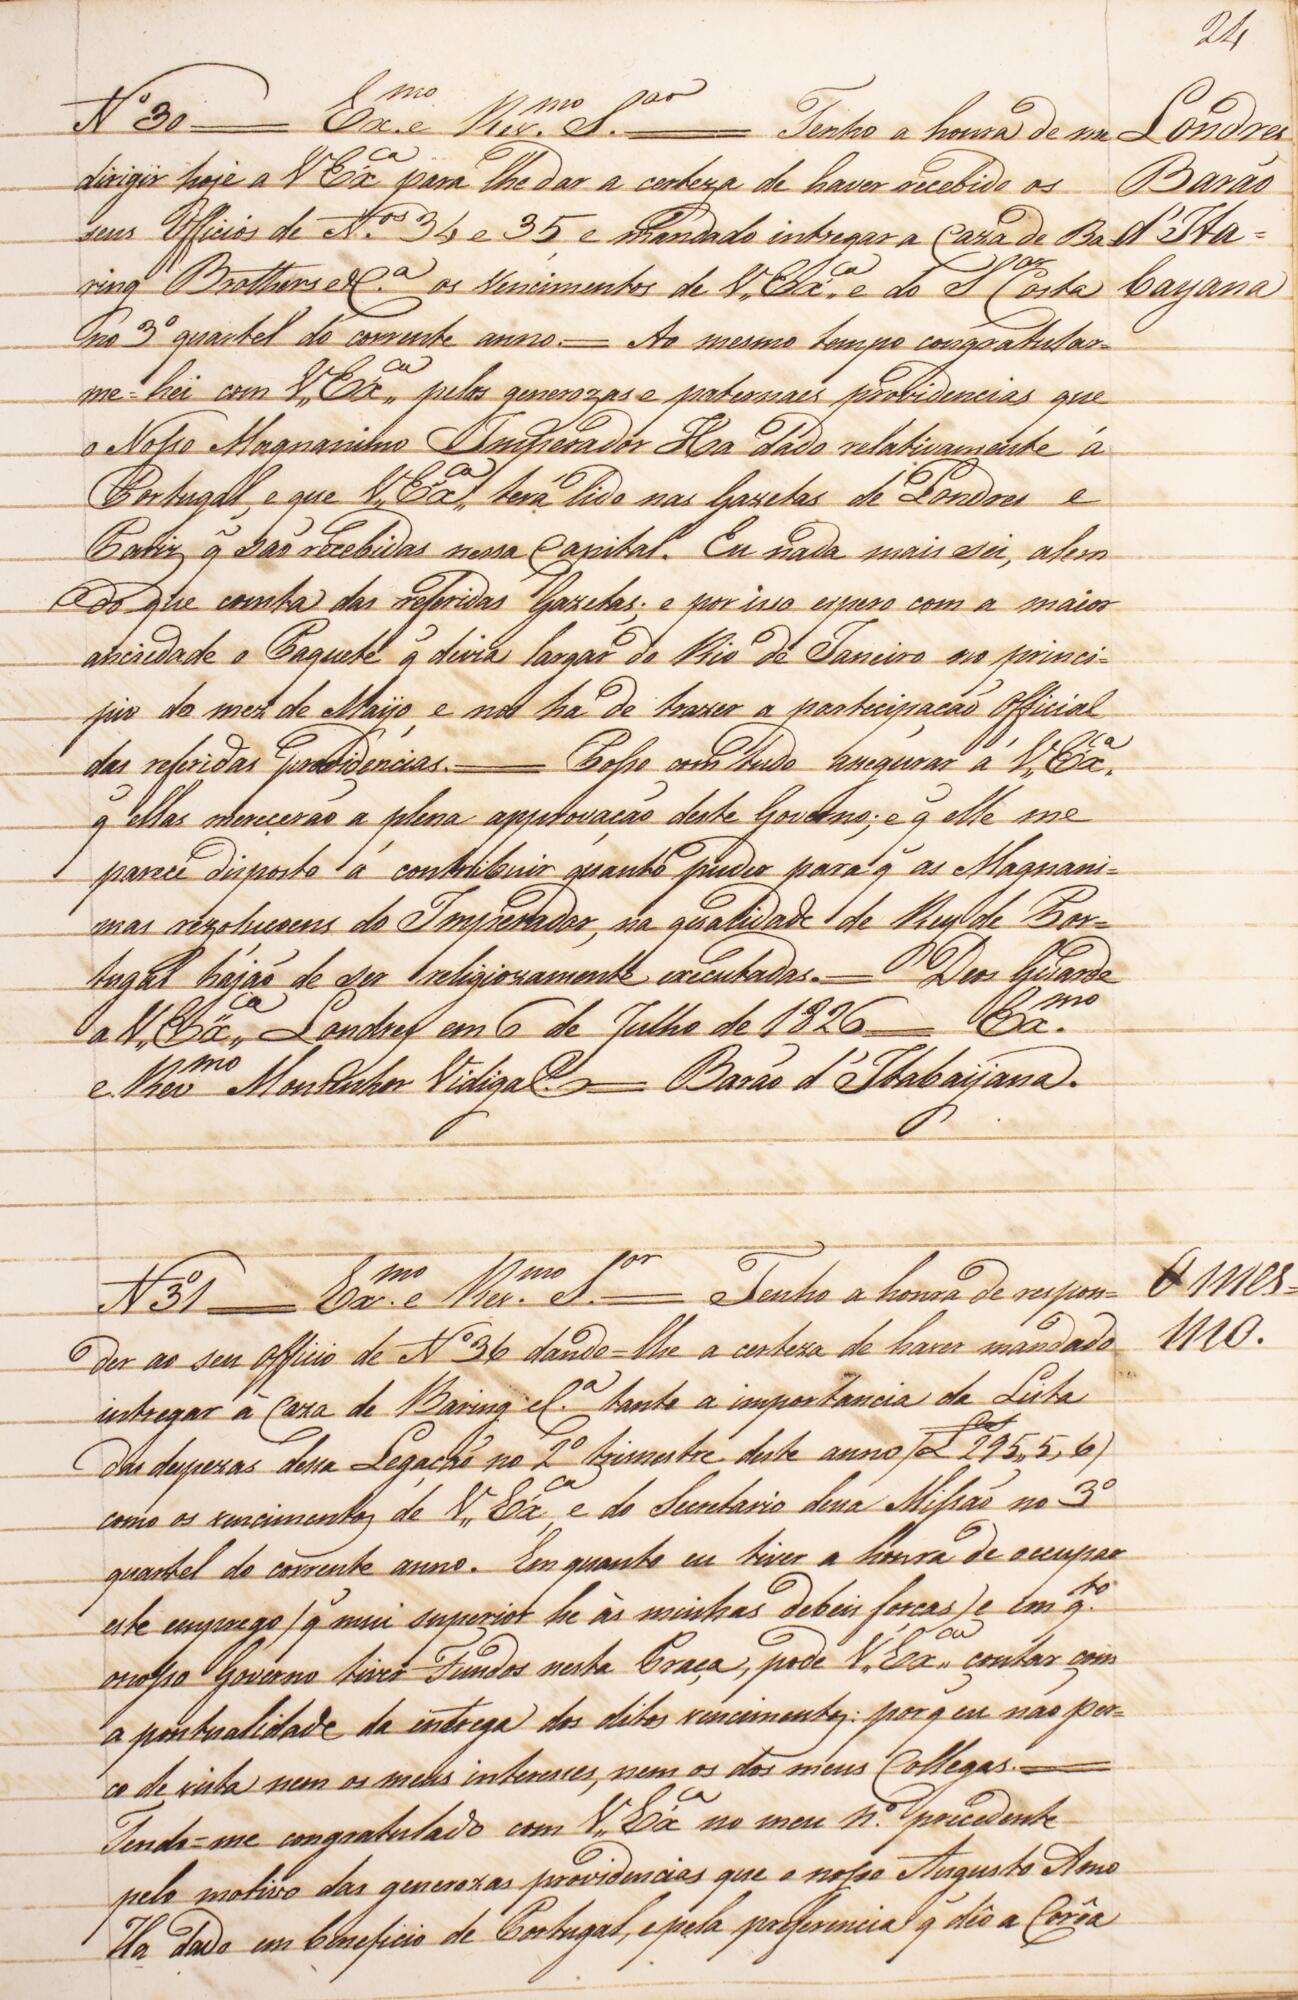 24
Nº 30 — Ex.mo e Rev.mo S.or — Tenho a honra de me
dirigir hoje a V Exca para lhe dar a certeza de haver recebido os
seus Officios de N.os 34 e 35 e mandado intregar a Caza de Ba
ring Brothers e C.a os vencimentos de V,, Exca,, e do S.or Costa
no 3º quartel do corrente anno. — Ao mesmo tempo congratular=
me=hei com V,, Exca,, pelas generozas e paternaes providencias que
o Nosso Magnanimo Imperador Ha dado relativamente á
Portugal, e que V,, Exca,, terá lido nas Gazetas de Londres e
Pariz q̃ são recebidas nessa Capital. Eu nada mais sei, alem
do que consta das referidas Gazetas; e por isso espero com a maior
anciedade o Paquete q̃ divia largar do Rio de Janeiro no princi=
pio do mez de Maijo, e nos ha de trazer a partecipacão Official
das referidas providencias. — Posso com tudo assegurar á V,, Exca.
q̃ ellas merecerão a plena approvacão deste Governo; e q̃ elle me
parece disposto á contribuir quanto puder para q̃ as Magnani=
mas rezolucoens do Imperador, na qualidade de Rey de Por=
tugal hájão de ser religiozamente executadas. — Deos Guarde
a V,, Exca,, Londres em 6 de Julho de 1826 — Ex.mo
e Rev.mo Monsenhor Vidigal. — Barão d'Itabaijana.
Londres
Barão
d'Ita=
bayana
Nº 31 — Ex.mo e Rev.mo S.or — Tenho a honra de respon=
der ao seu Officio de Nº 36 dando=lhe a certeza de haver mandado
intregar à Caza de Baring e C.a tanto a importancia da Lista
das despezas dessa Legação no 2º trimestre deste anno (£ 295,, 5,, 6)
como os vencimentos de V,, Exca, e do Secretario dessa Missão no 3º
quartel do corrente anno. Em quanto eu tiver a honra de occupar
este emprego (q̃ mui superior he às minhas debeis forcas) e em q.to
o nosso Governo tiver Fundos nesta Praça, pode V,, Exca,, contar com
a pontualidade da entrega dos ditos vencimentos: porq̃ eu não per=
co de vista nem os meus interesses, nem os dos meus Collegas. —
Tendo=me congratulado com V,, Exca no meu n.º precedente
pelo motivo das generozas providencias que o nosso Augusto Amo
Ha dado em beneficio de Portugal, e pela preferencia q̃ dêo a Corôa
O mes=
mo.